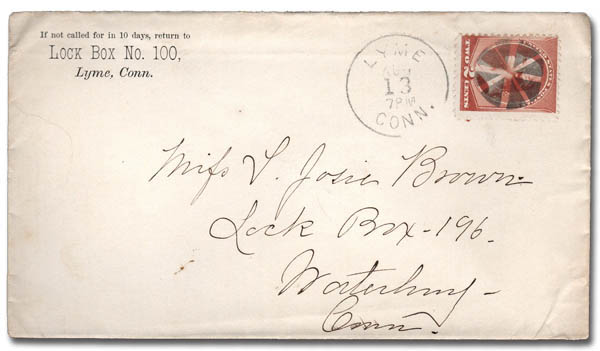 If not called for in 10 days, return to
LOCK BOX NO. 100,
Lyme, Conn.
LYME
AUG
13
7PM
CONN.
TWO 2 CENTS
Miss L. Josie Brown.
Lock Box-196.
Waterbury-
Conn.